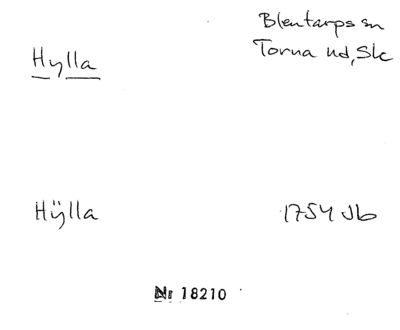 Blentarps sn
Hylla
Torna hd, Sk
Hÿlla
1754 Jb
Nr 18210